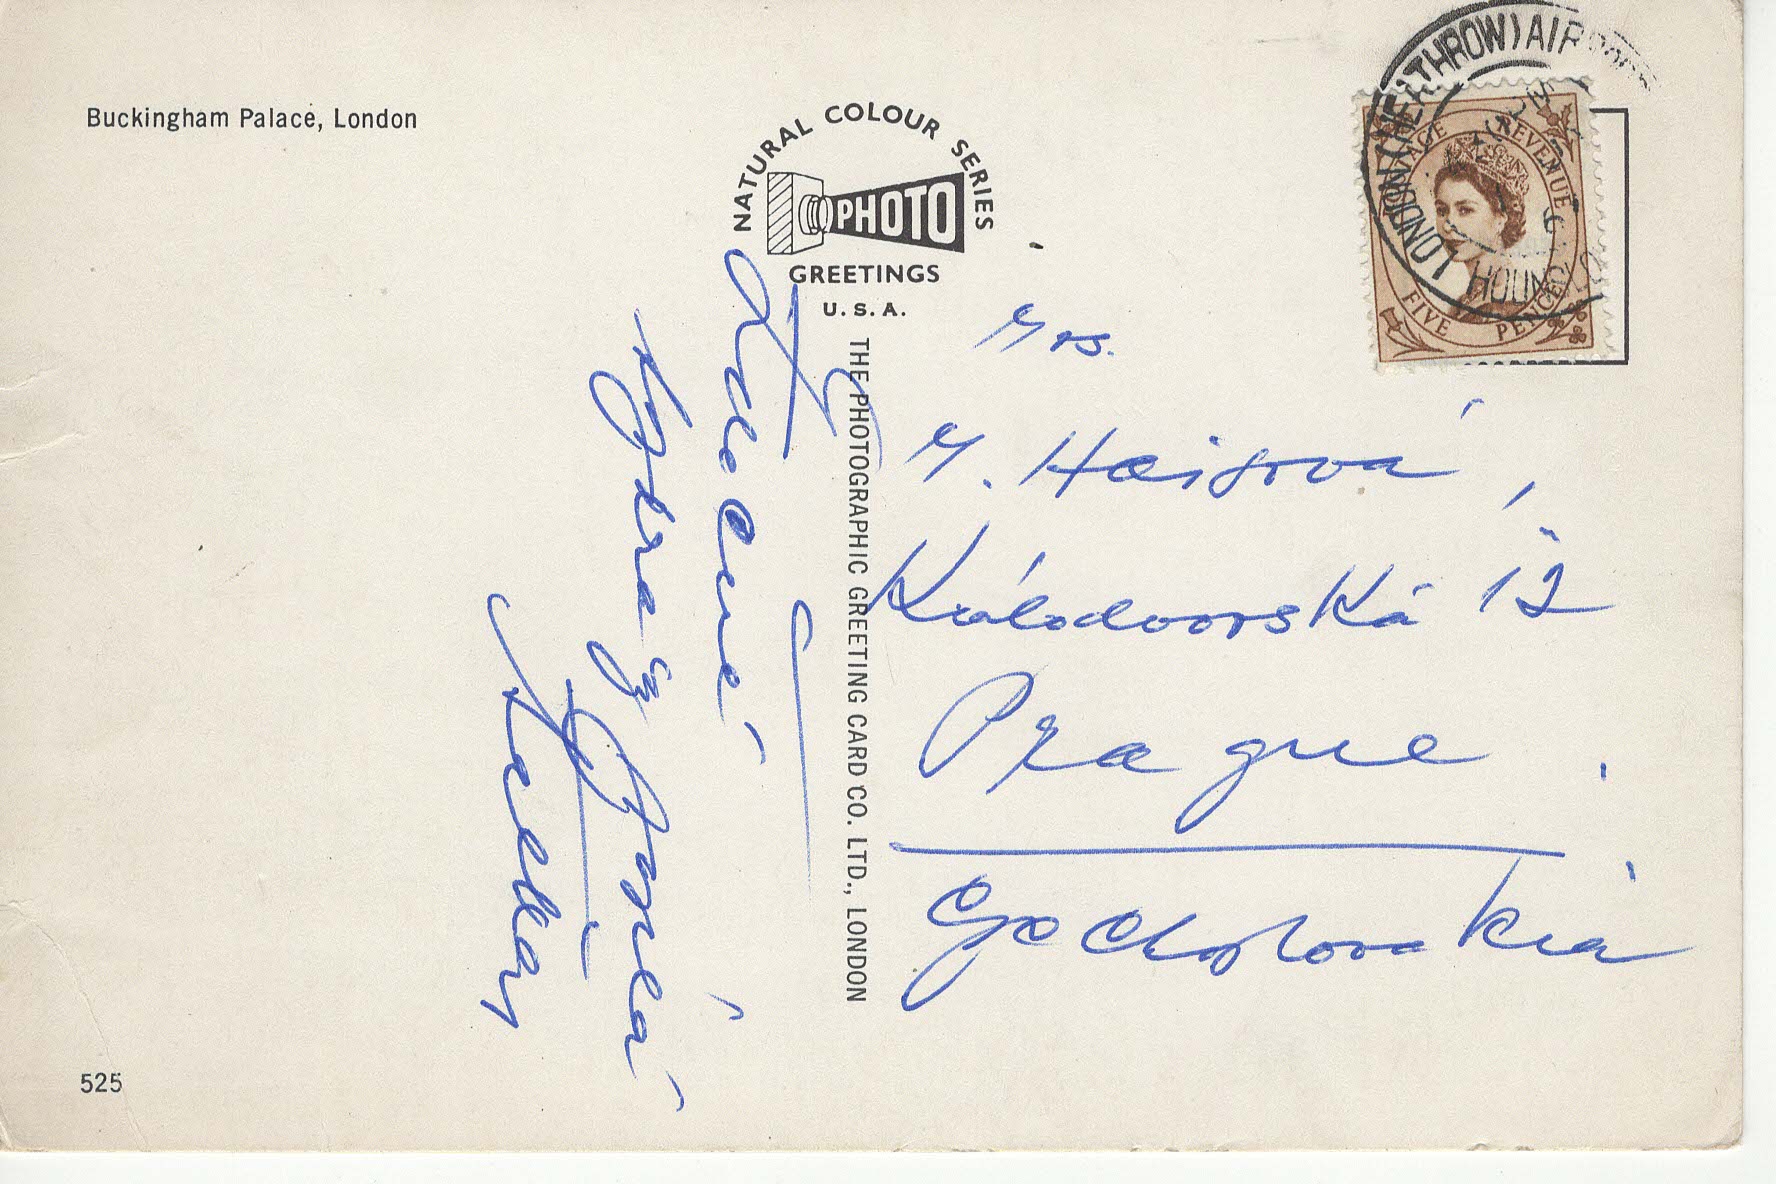 Buckingham Palace, London
NATURAL COLOUR SERIES
PHOTO
GREETINGS
U. S. A.
THE PHOTOGRAPHIC GREETING CARD CO. LTD., LONDON
LONDON (HEATHROW) AIRPORT
HOUNSLOW
POSTAGE REVENUE
FIVE PENCE
Srdečné
pozdravy
Mrs.
M. Haisová,
Královodvorská 12
Prague.
Czechoslovakia
525